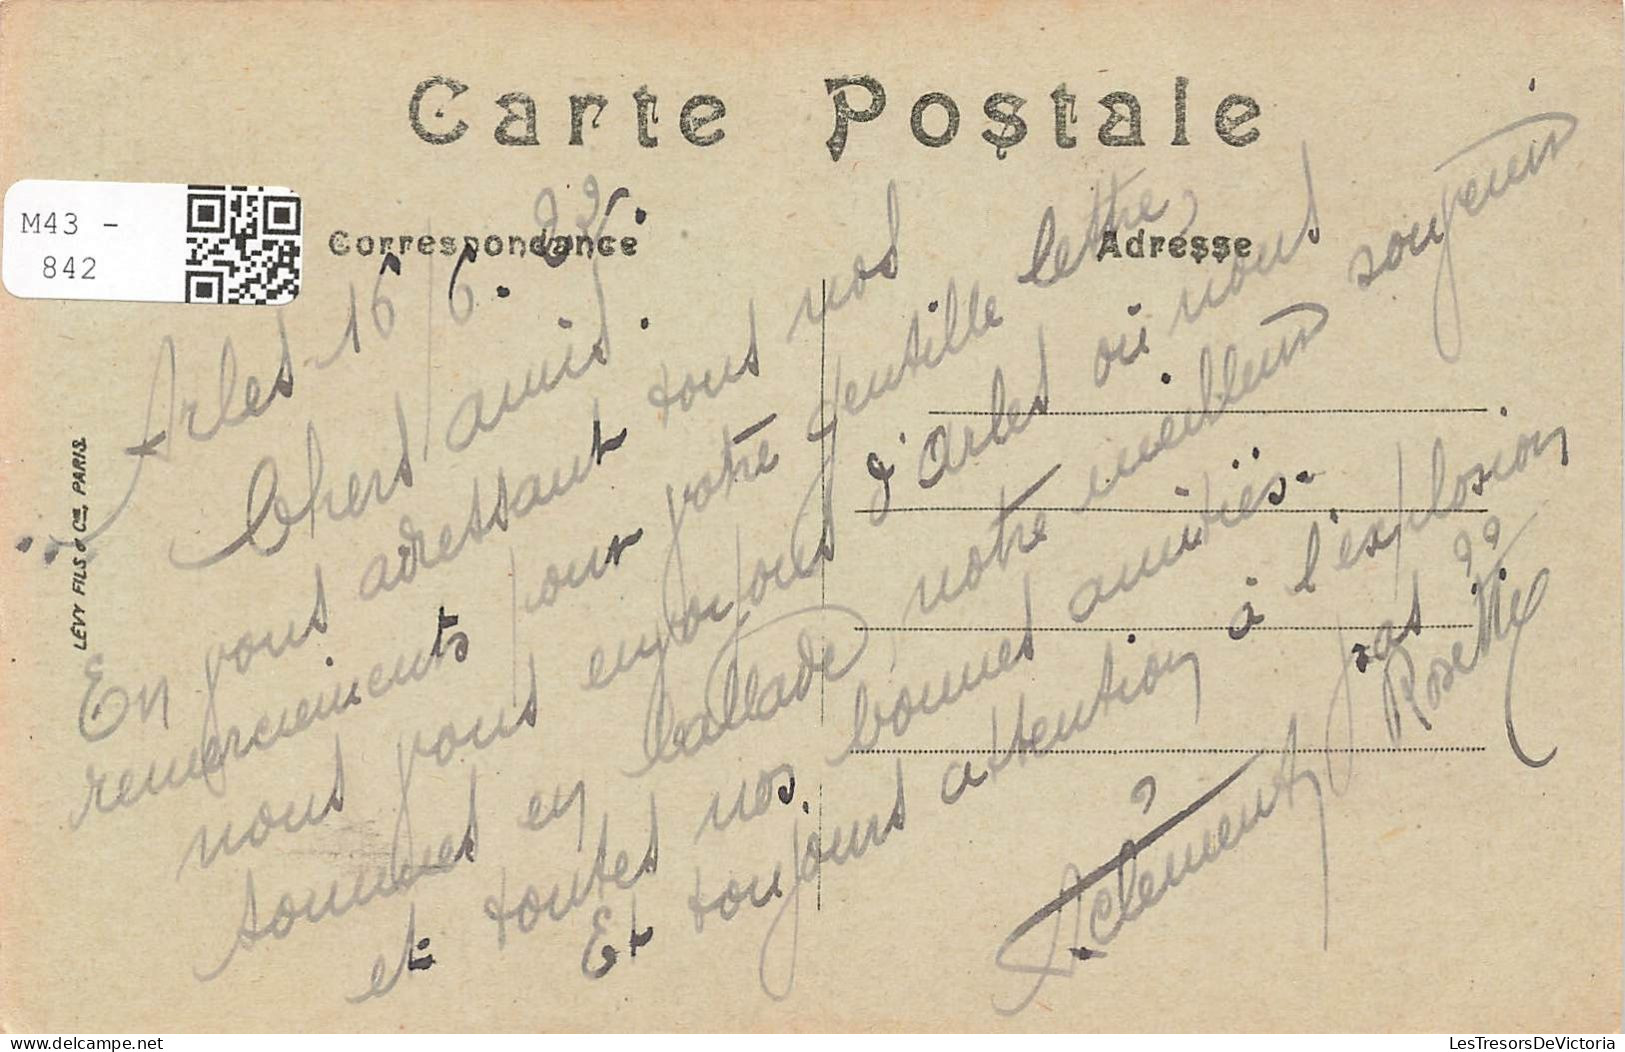 Carte Postale
Correspondance
Adresse
M43 -
842
LEVY FILS & Cie, PARIS
Arles 16/6.
Chers amis.
En vous adressant tous nos
remerciements pour votre gentille lettre,
nous vous envoyons d'Arles où nous
sommes en ballade, notre meilleur souvenir
et toutes nos bonnes amitiés.
Et toujours attention à l'explosion
Clément
Rosette
LesTresorsDeVictoria.com